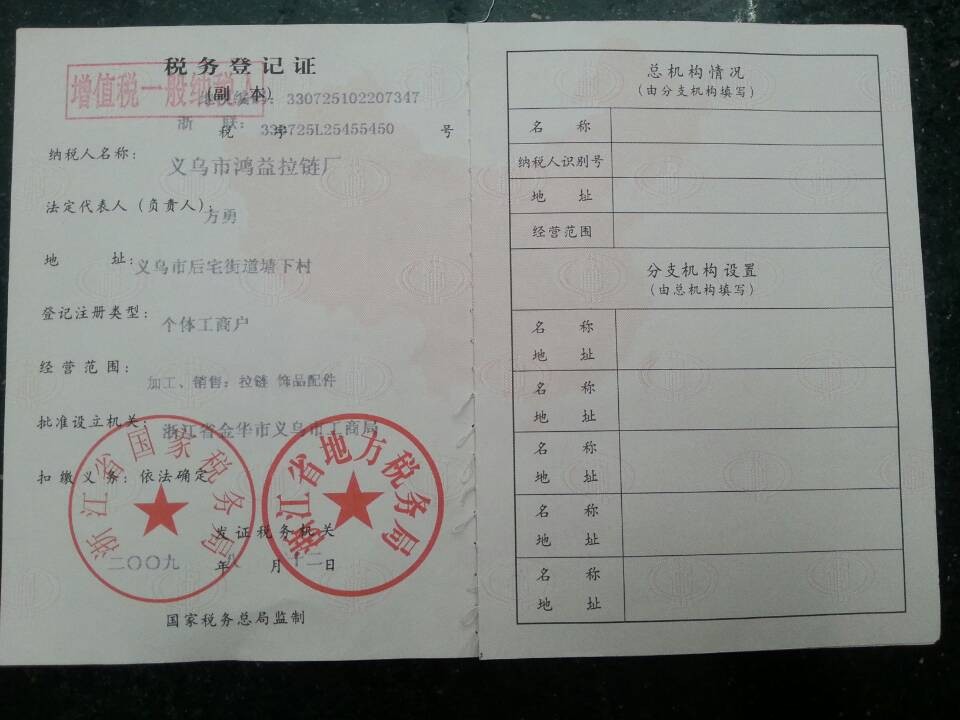 税务登记证
增值税一般纳税人
(副 本)
330725102207347
浙 联:
税 字 330725L25455450 号
纳税人名称: 义乌市鸿益拉链厂
法定代表人(负责人): 方勇
地 址: 义乌市后宅街道塘下村
登记注册类型: 个体工商户
经营范围: 加工、销售:拉链 饰品配件
批准设立机关: 浙江省金华市义乌市工商局
扣缴义务: 依法确定
浙江省国家税务局
浙江省地方税务局
发证税务机关
二〇〇九 年 八 月 十二 日
国家税务总局监制
总机构情况
(由分支机构填写)
名 称
纳税人识别号
地 址
经营范围
分支机构设置
(由总机构填写)
名 称
地 址
名 称
地 址
名 称
地 址
名 称
地 址
名 称
地 址